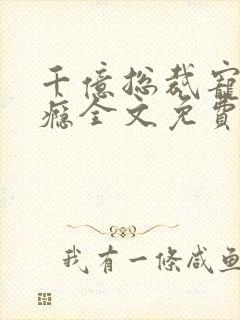 千億總裁寵
癮全文免費
我有一條咸魚